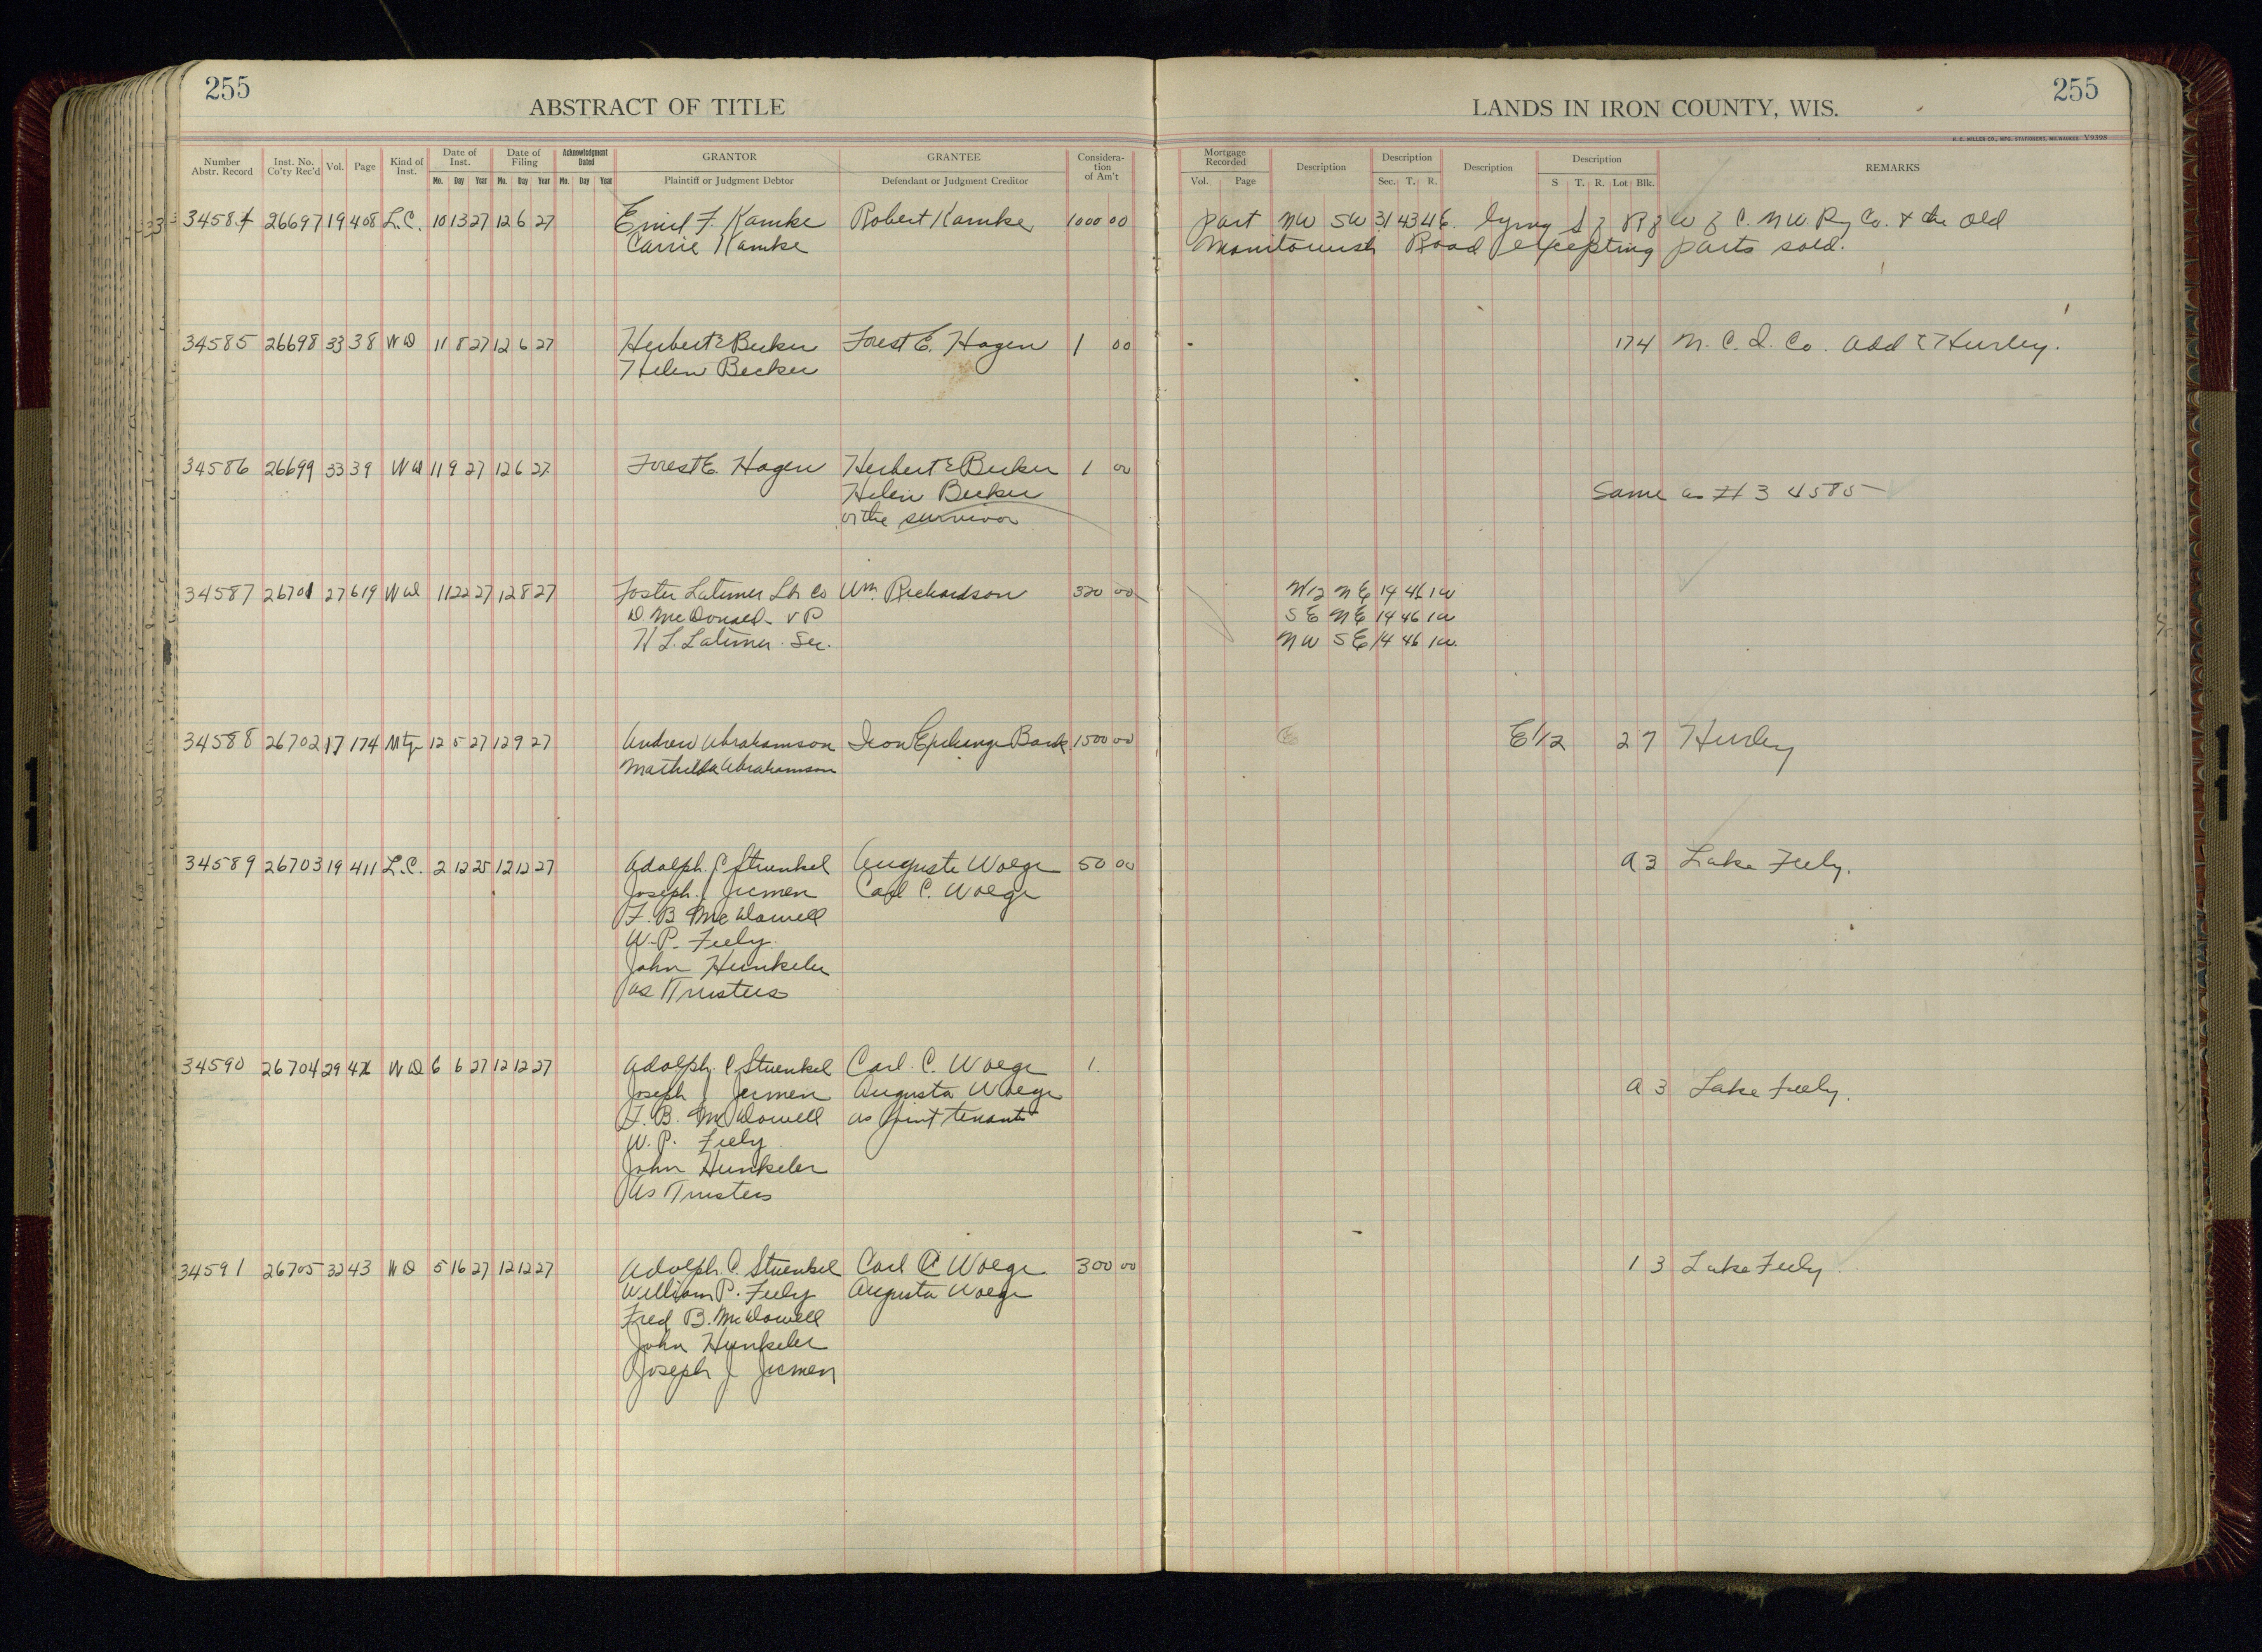 255
ABSTRACT OF TITLE
LANDS IN IRON COUNTY, WIS.
255
H. C. MILLER CO., MFG. STATIONERS, MILWAUKEE V9398
Number Abstr. Record Inst. No. Co'ty Rec'd Vol. Page Kind of Inst. Date of Inst. Mo. Day Year Date of Filing Mo. Day Year Acknowledgment Dated Mo. Day Year GRANTOR Plaintiff or Judgment Debtor GRANTEE Defendant or Judgment Creditor Considera-tion of Am't
Mortgage Recorded Vol. Page Description Description Sec. T. R. Description Description S T. R. Lot Blk. REMARKS
34584 26697 19 408 L.C. 10 13 27 12 6 27 Emil F. Kamke Robert Kamke 1000 00 Part NW SW 31 43 4E. lying S of R of W of C. N W. Ry Co. & the old
Carrie Kamke Manitowish Road excepting parts sold.
34585 26698 33 38 WD 11 8 27 12 6 27 Herbert E Becker Forest E. Hagen 1 00 174 M. C. I. Co. Add to Hurley.
Helen Becker
34586 26699 33 39 WD 11 9 27 12 6 27 Forest E. Hagen Herbert E Becker 1 00
Helen Becker Same as # 34585
or the survivor
34587 26701 27 619 WD 11 22 27 12 8 27 Foster Latimer Lbr Co Wm. Richardson 320 00 N/2 NE 14 46 1W
D McDonald VP SE NE 14 46 1W
H L. Latimer Sec. NW SE 14 46 1W.
34588 26702 17 174 Mtg 12 5 27 12 9 27 Andrew Abrahamson Iron Exchange Bank 1500 00 E1/2 27 Hurley
Mathilda Abrahamson
34589 26703 19 411 L.C. 2 12 25 12 12 27 Adolph C Stuenkel Auguste Woege 50 00 A 3 Lake Feely.
Joseph J Jermen Carl C. Woege
F. B McDowell
W. P. Feely
John Hunkeler
as Trustees
34590 26704 29 WD 6 6 27 12 12 27 Adolph C Stuenkel Carl C. Woege 1.
Joseph J Jermen Augusta Woege A 3 Lake Feely.
F. B. McDowell as joint tenants
W. P. Feely
John Hunkeler
As Trustees
34591 26705 32 43 WD 5 16 27 12 12 27 Adolph C. Stuenkel Carl C Woege 300 00 1 3 Lake Feely
William P. Feely Augusta Woege
Fred B. McDowell
John Hunkeler
Joseph J Jermen